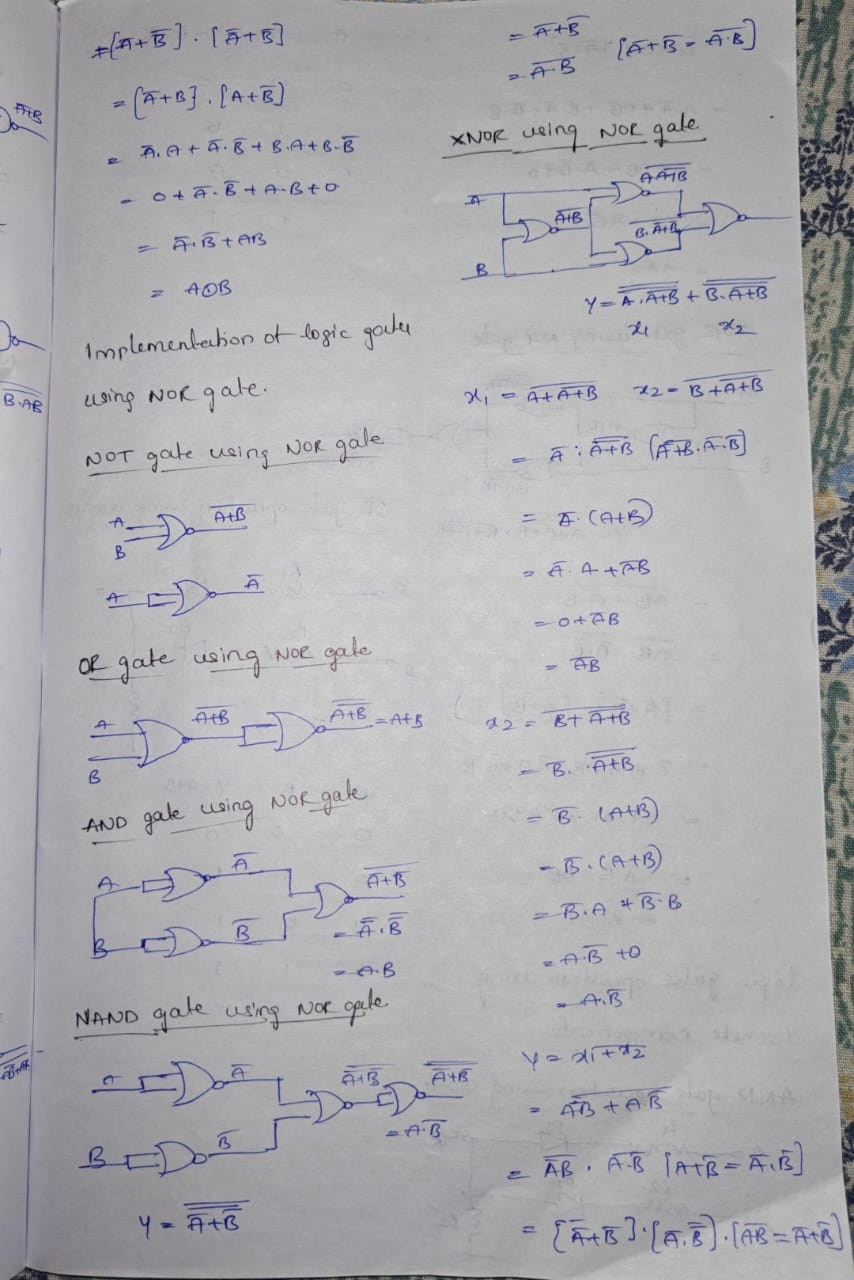 ≠[A̅+B̿].[A̿+B̅]
=[A̅+B].[A+B̅]
= A̅.A+A̅.B̅+B.A+B.B̅
= 0+A̅.B̅+A.B+0
= A̅.B̅+AB
= A⊙B
Implementation of logic gates
using NOR gate.
NOT gate using NOR gate
A
B
\overline{A+B}
A
A̅
OR gate using NOR gate
A
B
\overline{A+B}
\overline{\overline{A+B}} = A+B
AND gate using NOR gate
A
A̅
B
B̅
\overline{A̅+B̅}
= A̿.B̿
= A.B
NAND gate using NOR gate
A̅
B
B̅
\overline{A̅+B̅}
\overline{\overline{A̅+B̅}}
= \overline{A.B}
Y = \overline{\overline{A̅+B̅}}
= A̅+B̅
= \overline{A.B} [A̅+B̅ = \overline{A.B}]
XNOR using NOR gate
A
B
\overline{A+B}
\overline{A.\overline{A+B}}
\overline{B.\overline{A+B}}
Y = \overline{\overline{A.\overline{A+B}} + \overline{B.\overline{A+B}}}
x1 x2
x1 = \overline{A+\overline{A+B}} x2 = \overline{B+\overline{A+B}}
= A̅.\overline{\overline{A+B}} [\overline{A+B}.A̅.B̅]
= A̅.(A+B)
= A̅.A+A̅B
= 0+A̅B
= A̅B
x2 = \overline{B+\overline{A+B}}
= B̅.\overline{\overline{A+B}}
= B̅.(A+B)
= B̅.(A+B)
= B̅.A+B̅.B
= A.B̅+0
= A.B̅
Y = \overline{x1+x2}
= \overline{A̅B+A.B̅}
= \overline{A̅B}.\overline{A.B̅} [\overline{A+B} = A̅.B̅]
= [A̿+B̅].[A̅.B̿].[\overline{AB} = A̅+B̅]